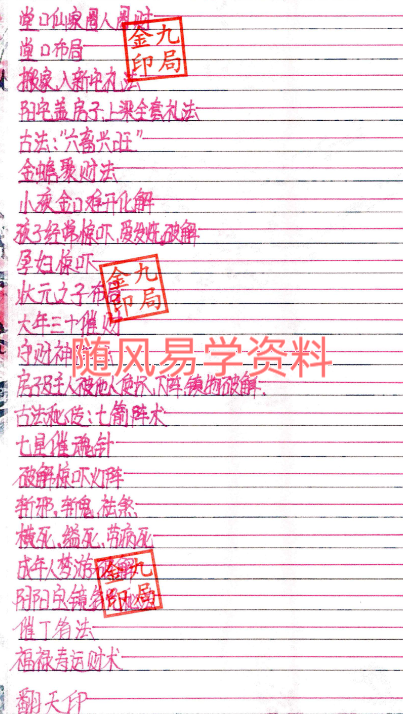 堂口仙家圈人圈财
堂口布局
搬家入新宅礼法
阳宅盖房子、上梁全套礼法
古法:“六畜兴旺”
金蟾聚财法
小孩金口难开化解
孩子经常惊吓、发烧破解
孕妇惊吓
状元之子布局
大年三十催财
守财神法
房子及主人被他人下阵、镇物破解、
古法秘传:七箭阵术
七星催魂针
破解惊吓灯阵
斩邪、斩鬼、祛煞
横死、缢死、带病死
成年人梦游
阴阳宝镜
催丁符法
福禄寿运财术
翻天印
九局金印
九局金印
九局金印
随风易学资料